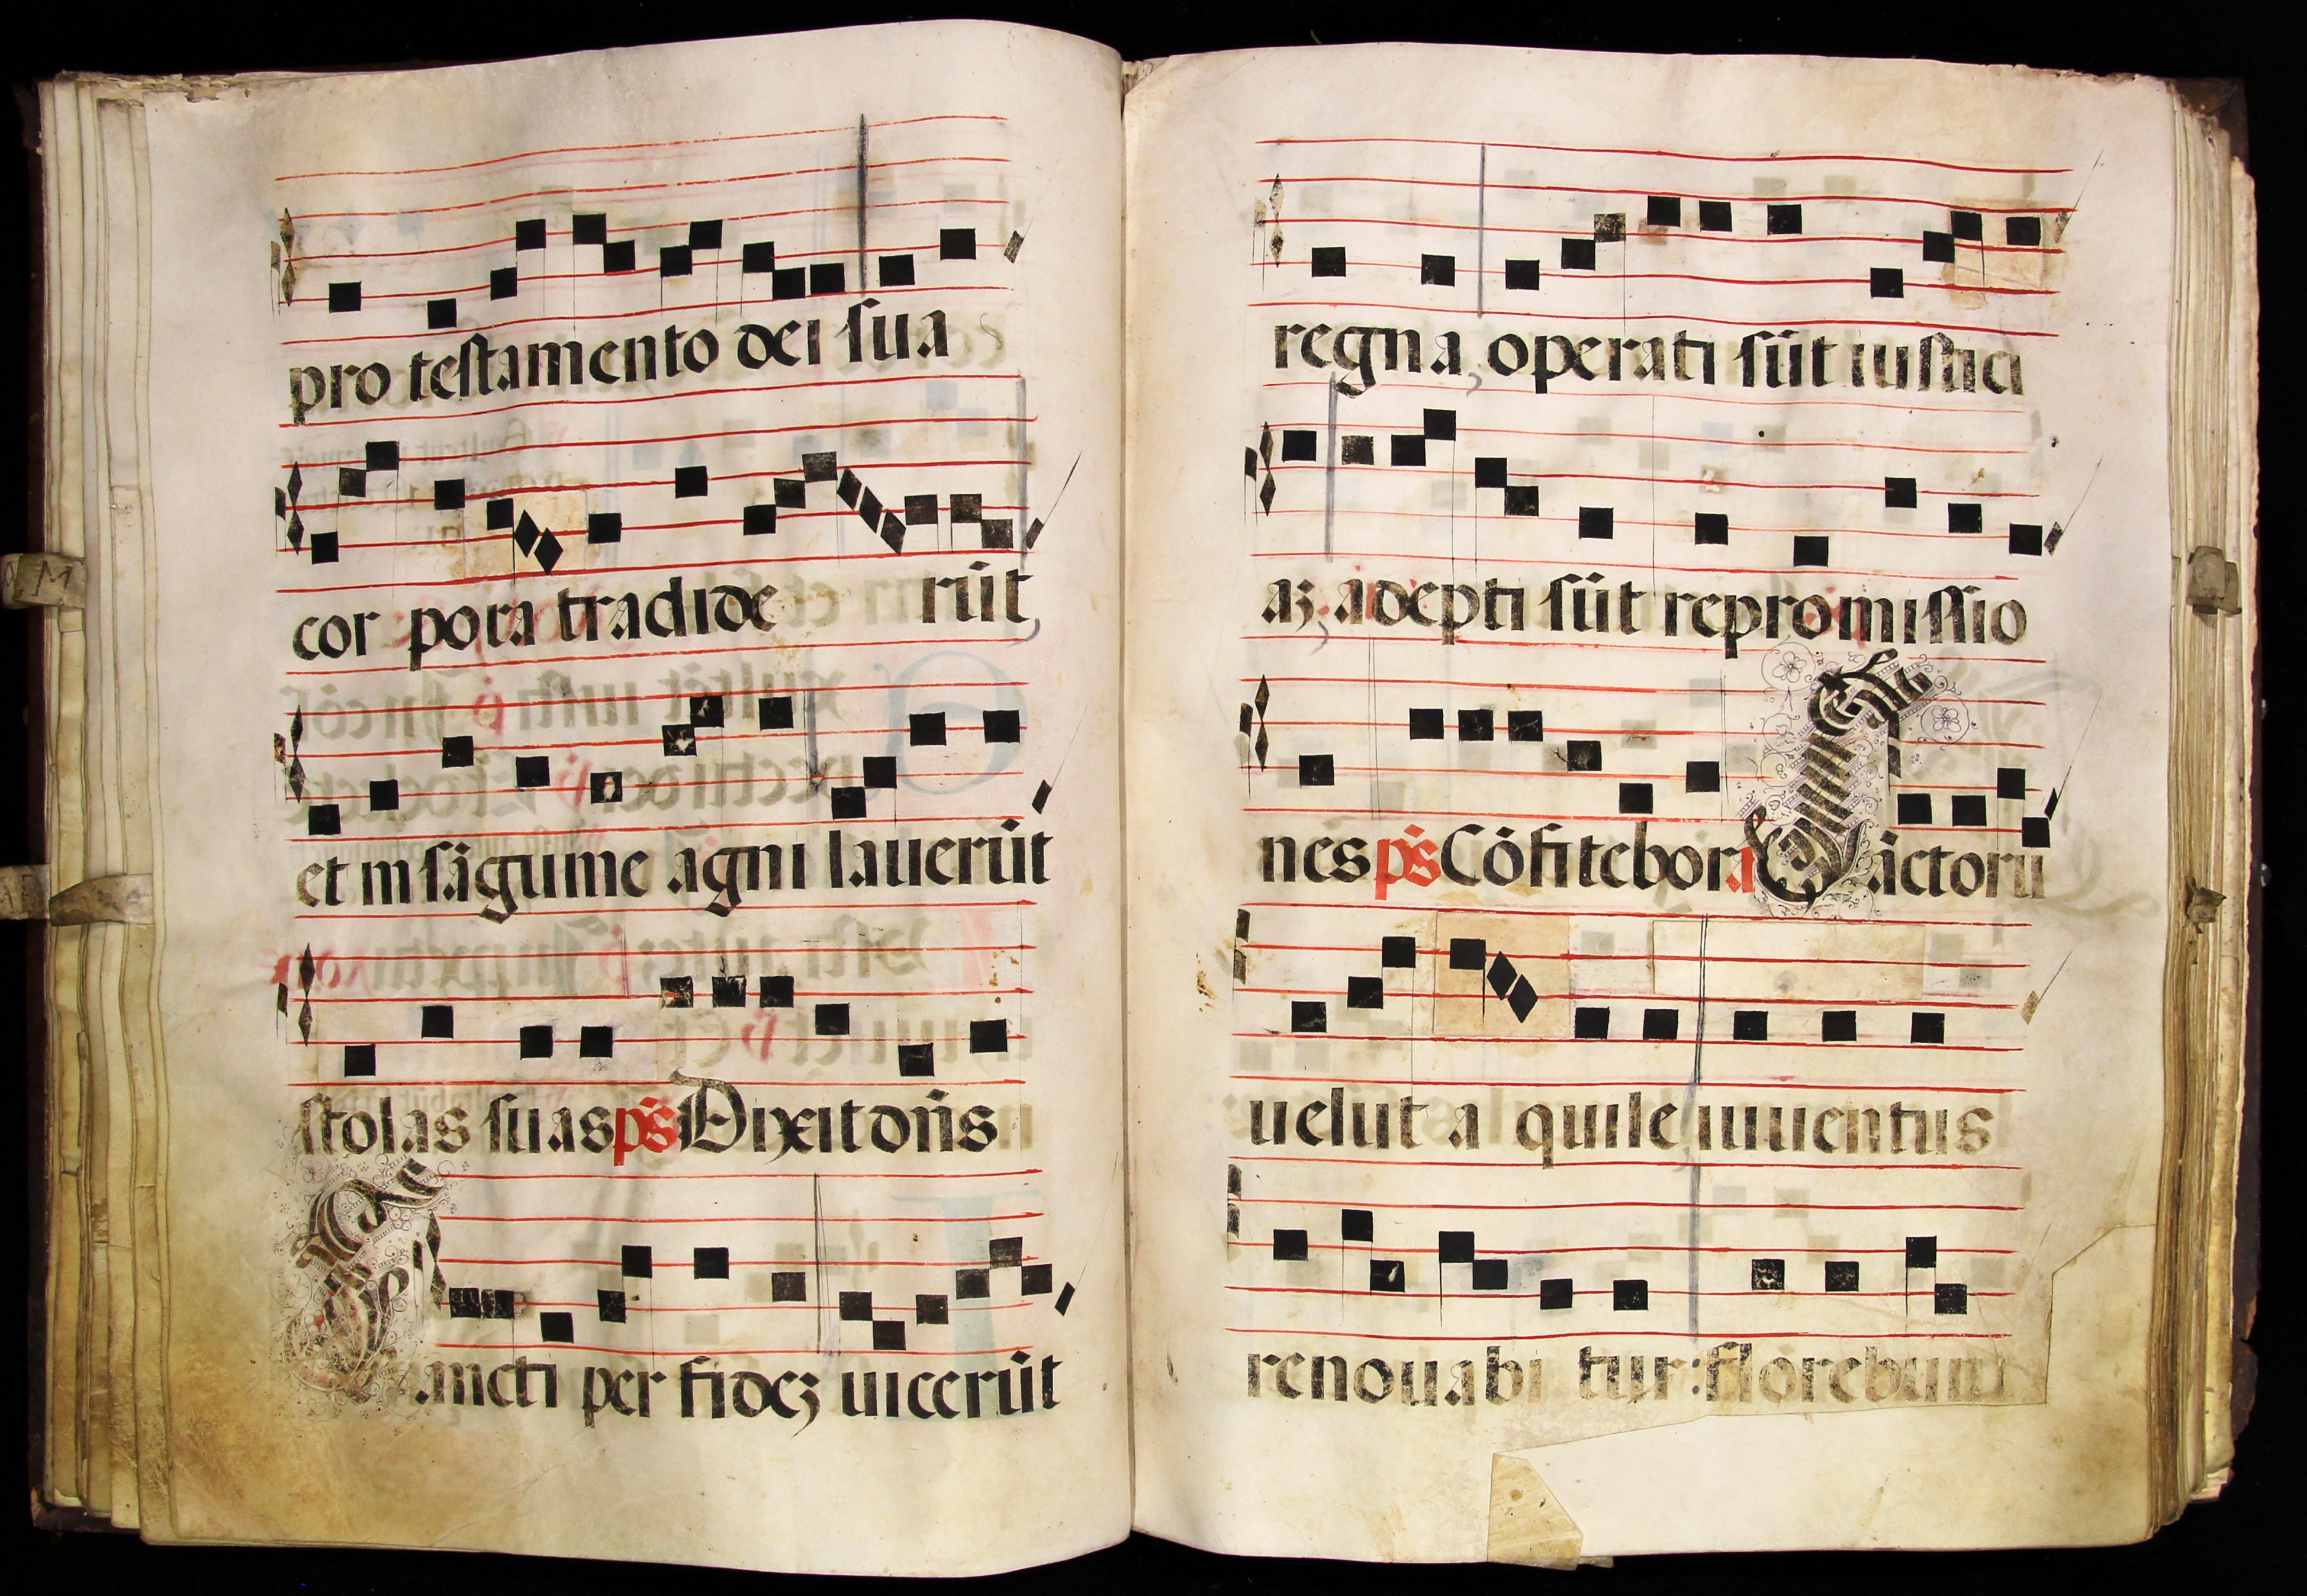 pro testamento dei sua
cor pora tradide rūt,
et in sāguine agni lauerūt
stolas suas ps̄ Dixit dn̄s
Sancti per fidez uicerūt
regna, operati sūt iustici
az, adepti sūt repromissio
nes ps̄ Cōfitebor a Sāctorū
uelut a quile iuuentus
renouabi tur: florebunt
M